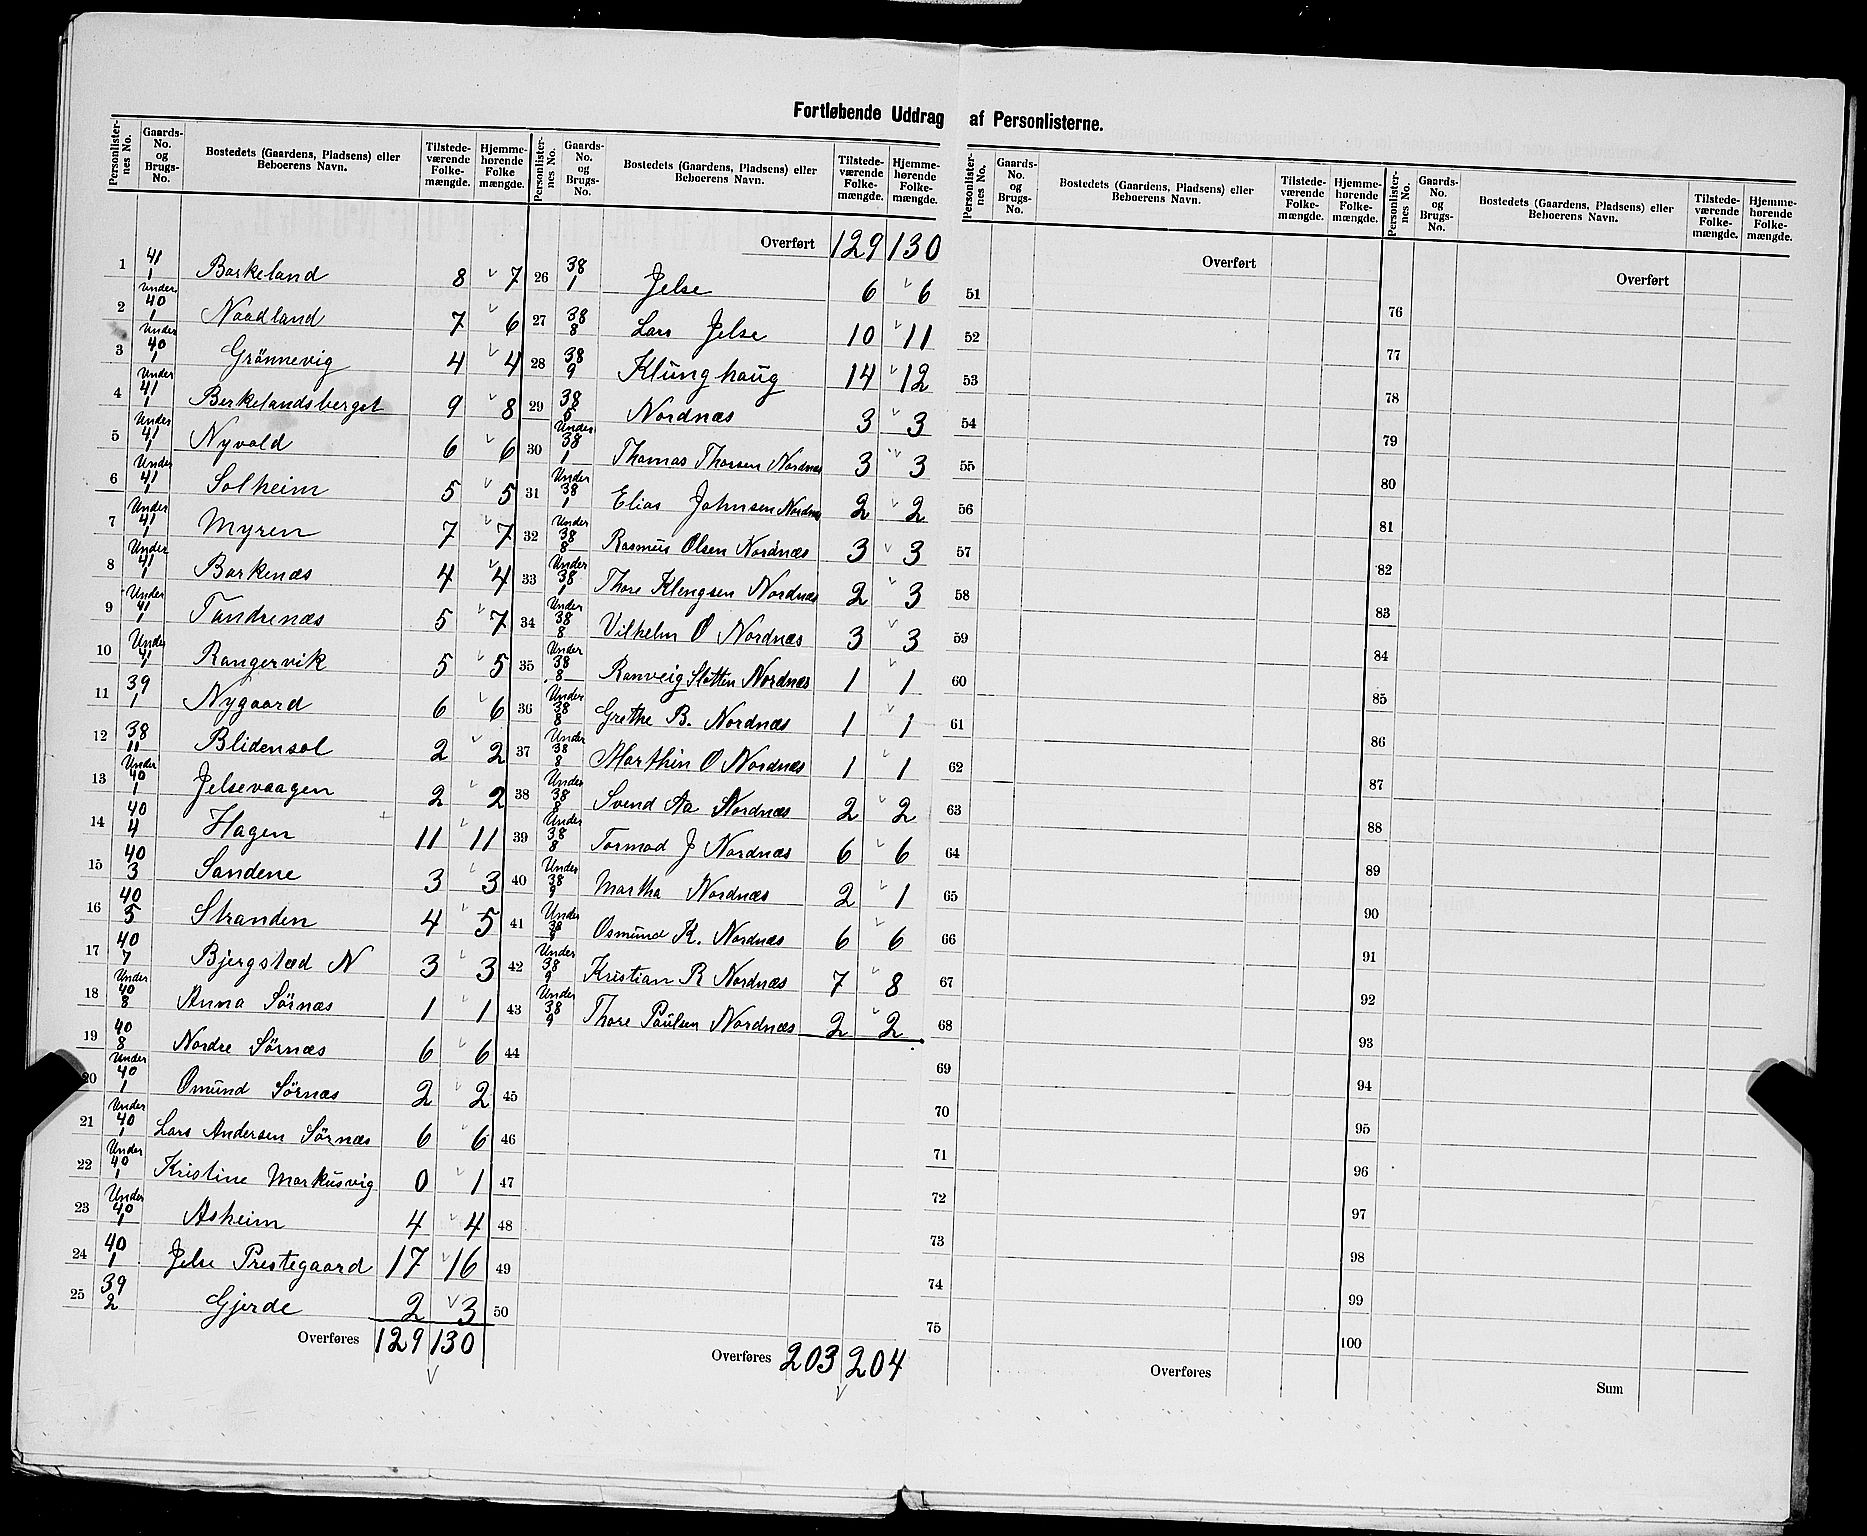 Fortløbende Uddrag af Personlisterne.
Personlister-nes No. Gaards-No. og Brugs-No. Bostedets (Gaardens, Pladsens) eller Beboerens Navn. Tilstede-værende Folke-mængde. Hjemme-hørende Folke mængde.
1 41 1 Barkeland 8 7
2 Under 40 1 Naadland 7 6
3 Under 40 1 Grönnevig 4 4
4 Under 41 1 Berkelandsberget 9 8
5 Under 41 1 Nyvold 6 6
6 Under 41 1 Solheim 5 5
7 Under 41 Myren 7 7
8 Under 41 1 Barkenæs 4 4
9 Under 41 1 Tandrenæs 5 7
10 Under 41 1 Rangervik 5 5
11 39 1 Nygaard 6 6
12 38 11 Blidensol 2 2
13 Under 40 1 Jelsevaagen 2 2
14 40 4 Hagen 11 11
15 40 3 Sandene 3 3
16 40 5 Stranden 4 5
17 40 7 Bjergsted N 3 3
18 Under 40 8 Anna Sörnæs 1 1
19 40 8 Nordre Sörnæs 6 6
20 Under 40 1 Omund Sörnæs 2 2
21 Under 40 1 Lars Andersen Sörnæs 6 6
22 Under 40 1 Kristine Markusvig 0 1
23 Under 40 1 Asheim 4 4
24 40 1 Jelse Prestegaard 17 16
25 39 2 Gjerde 2 3
Overføres 129 130
Personlister-nes No. Gaards-No. og Brugs-No. Bostedets (Gaardens, Pladsens) eller Beboerens Navn. Tilstede-værende Folke-mængde. Hjemme-hørende Folke-mængde.
Overført 129 130
26 38 1 Jelse 6 6
27 38 8 Lars Jelse 10 11
28 38 9 Klunghaug 14 12
29 38 5 Nordnæs 3 3
30 Under 38 1 Thomas Thorsen Nordnæs 3 3
31 Under 38 1 Elias Johnsen Nordnæs 2 2
32 Under 38 8 Rasmus Olsen Nordnæs 3 3
33 Under 38 1 Thore Klengsen Nordnæs 2 3
34 Under 38 8 Vilhelm O Nordnæs 3 3
35 Under 38 8 Ranveig Slotten Nordnæs 1 1
36 Under 38 8 Grethe B. Nordnæs 1 1
37 Under 38 8 Marthin O Nordnæs 1 1
38 Under 38 8 Svend Aa Nordnæs 2 2
39 Under 38 8 Tormod J Nordnæs 6 6
40 Under 38 9 Martha Nordnæs 2 1
41 Under 38 9 Osmund K. Nordnæs 6 6
42 Under 38 9 Kristian R Nordnæs 7 8
43 Under 38 9 Thore Paulsen Nordnæs 2 2
44
45
46
47
48
49
50
Overføres 203 204
Personlister-nes No. Gaards-No. og Brugs-No. Bostedets (Gaardens, Pladsens) eller Beboerens Navn. Tilstede-værende Folke-mængde. Hjemme-hørende Folke-mængde.
Overført
51
52
53
54
55
56
57
58
59
60
61
62
63
64
65
66
67
68
69
70
71
72
73
74
75
Overføres
Personlister-nes No. Gaards-No. og Brugs-No. Bostedets (Gaardens, Pladsens) eller Beboerens Navn. Tilstede-værende Folke-mængde. Hjemme-hørende Folke-mængde.
Overført
76
77
78
79
80
81
82
83
84
85
86
87
88
89
90
91
92
93
94
95
96
97
98
99
100
Sum